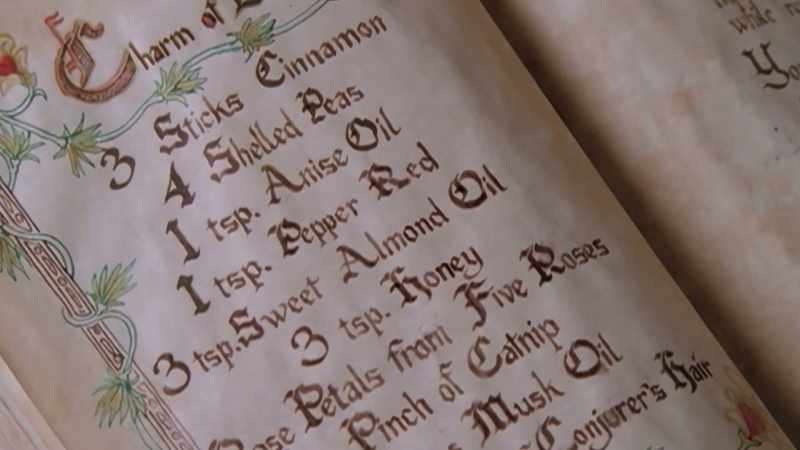 Charm of
3 Sticks Cinnamon
4 Shelled Peas
1 tsp. Anise Oil
1 tsp. Pepper Red
3 tsp. Sweet Almond Oil
3 tsp. Honey
Rose Petals from Five Roses
Pinch of Catnip
Musk Oil
Conjurer's Hair
while